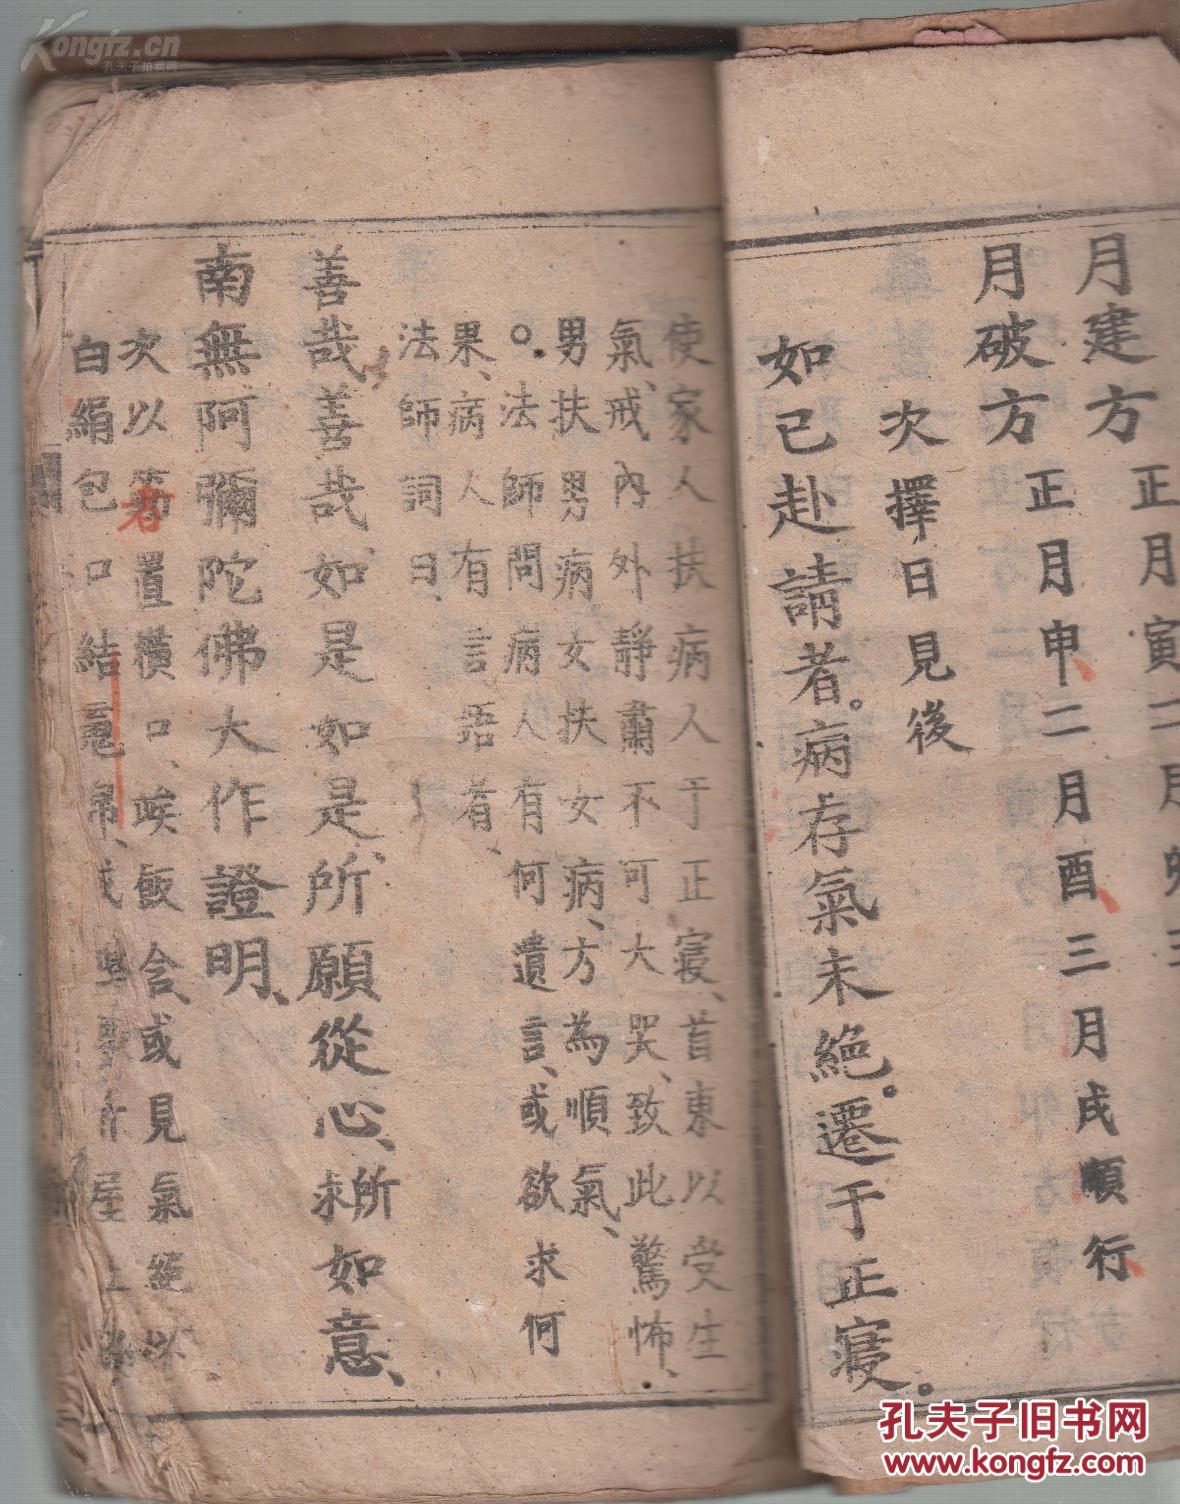 月建方 正月寅二月卯三
月破方 正月申二月酉三月戌順行
次擇日見後
如已赴請者。病存氣未絕。遷于正寢。
使家人扶病人于正寢、首東以受生
氣、戒內外靜肅不可大哭、致此驚怖、
男扶男病女扶女病、方為順氣、
○法師問病人有何遺言、或欲求何
果、病人有言語者、
法師詞曰、
善哉善哉、如是如是、所願從心、所求如意、
南無阿彌陀佛大作證明、
次以筯置橫口、俟飯含、或見氣絕以
白絹包口結魂帛、或 屋上
者
Kongfz.cn
孔夫子拍卖网
孔夫子旧书网
www.kongfz.com